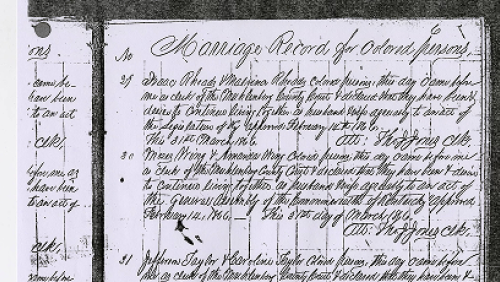 Marriage Record for Colored Persons
ons
No
29 Isaac Rhoads & Colored persons, this day came before
me as clerk of the Muhlenberg County Court & declared that they have been &
desire to continue living together as husband & wife agreeably to an act of
the Legislature of Ky approved February 14th 1866.
This 31st March 1866. Att: Tho J Jones Clk.
30 Moses Wing & Amanda Wing Colored persons this day came before me
as clerk of the Muhlenberg County Court & declared that they have been & desire
to continue living together as husband & wife agreeably to an act of
the General Assembly of the Commonwealth of Kentucky approved
February 14, 1866. This 31st day of March 1866.
Att: Tho J Jones Clk.
31 Jefferson Taylor & Caroline Taylor Colored persons, this day came before
me as clerk of the Muhlenberg County Court & declared that they have been &
came be-
have been
to an act
Clk.
before me as
have been
to an act of
Clk.
came before